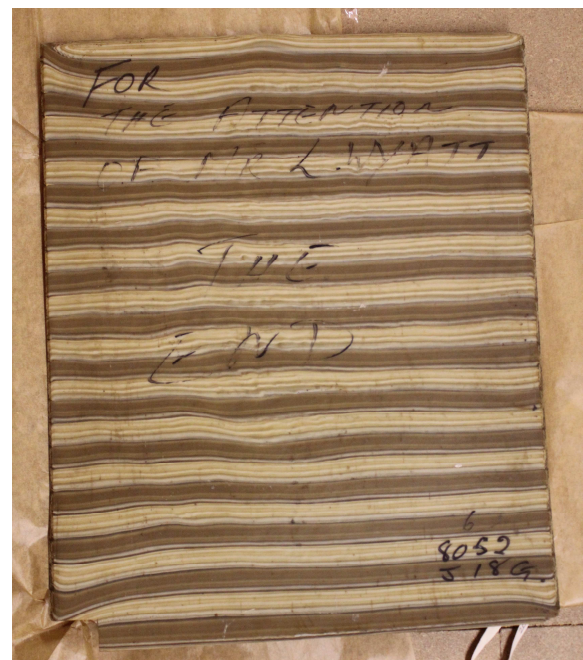 FOR
THE ATTENTION
OF MR L. WYATT
THE
END
6
8052
J 18 G.